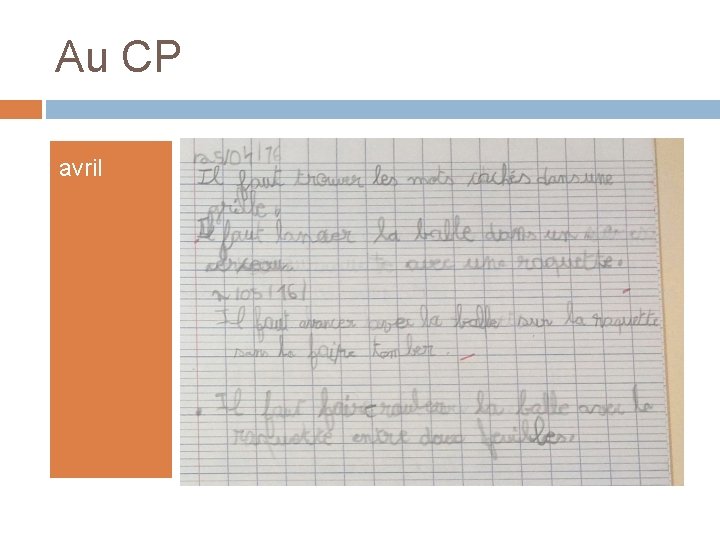 Au CP
avril
25/04/16
Il faut trouver les mots cachés dans une
grille.
Il faut lancer la balle dans un
cerceau avec une raquette.
/05/16/
Il faut avancer avec la balle sur la raquette
sans la faire tomber.
Il faut faire rouler la balle avec la
raquette entre deux feuilles.